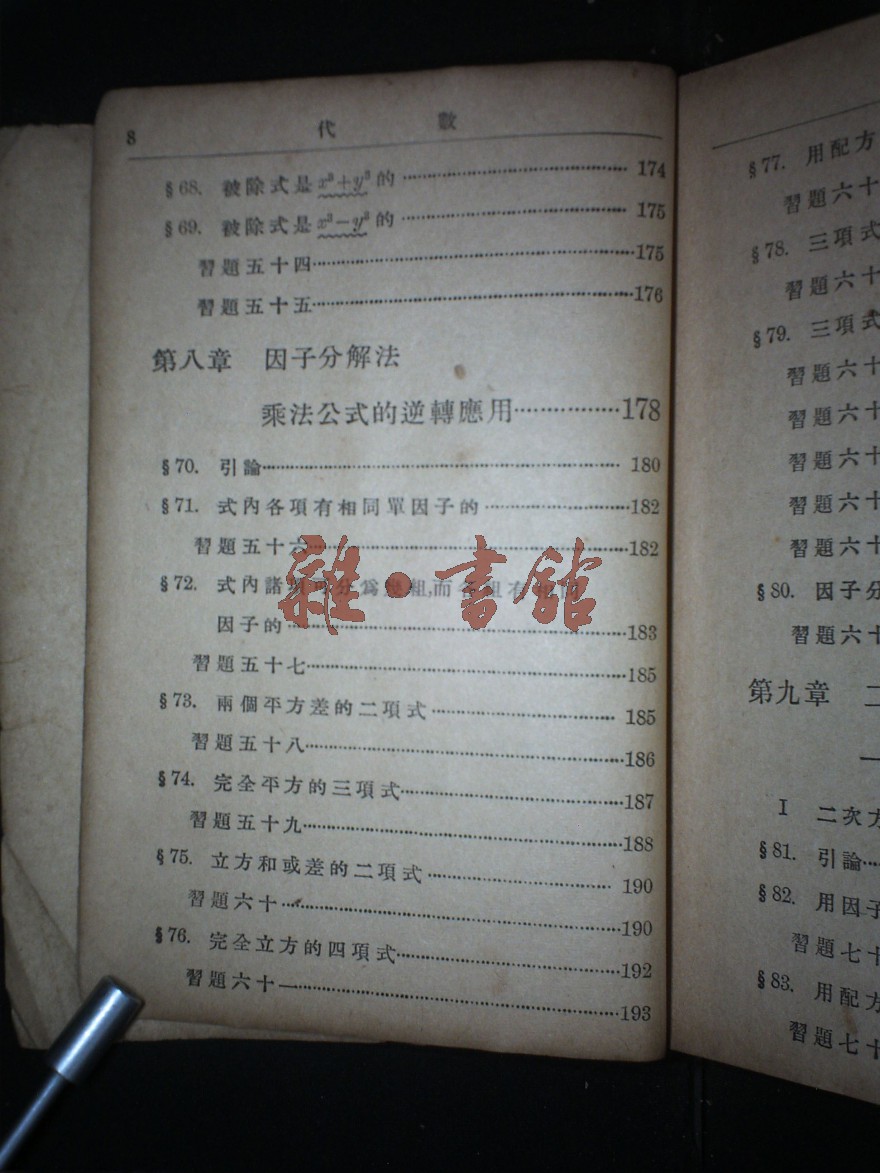 8 代 數
§68. 被除式是x³+y³的 174
§69. 被除式是x³-y³的 175
習題五十四 175
習題五十五 176
第八章 因子分解法
乘法公式的逆轉應用 178
§70. 引論 180
§71. 式內各項有相同單因子的 182
習題五十六 182
§72. 式內諸項可分爲幾組,而各組有相同
因子的 183
習題五十七 185
§73. 兩個平方差的二項式 185
習題五十八 186
§74. 完全平方的三項式 187
習題五十九 188
§75. 立方和或差的二項式 190
習題六十 190
§76. 完全立方的四項式 192
習題六十一 193
雜·書館
§77. 用配方
習題六十
§78. 三項式
習題六十
§79. 三項式
習題六十
習題六十
習題六十
習題六十
習題六十
§80. 因子分
習題六十
第九章 二
一
I 二次方
§81. 引論
§82. 用因子
習題七十
§83. 用配方
習題七十